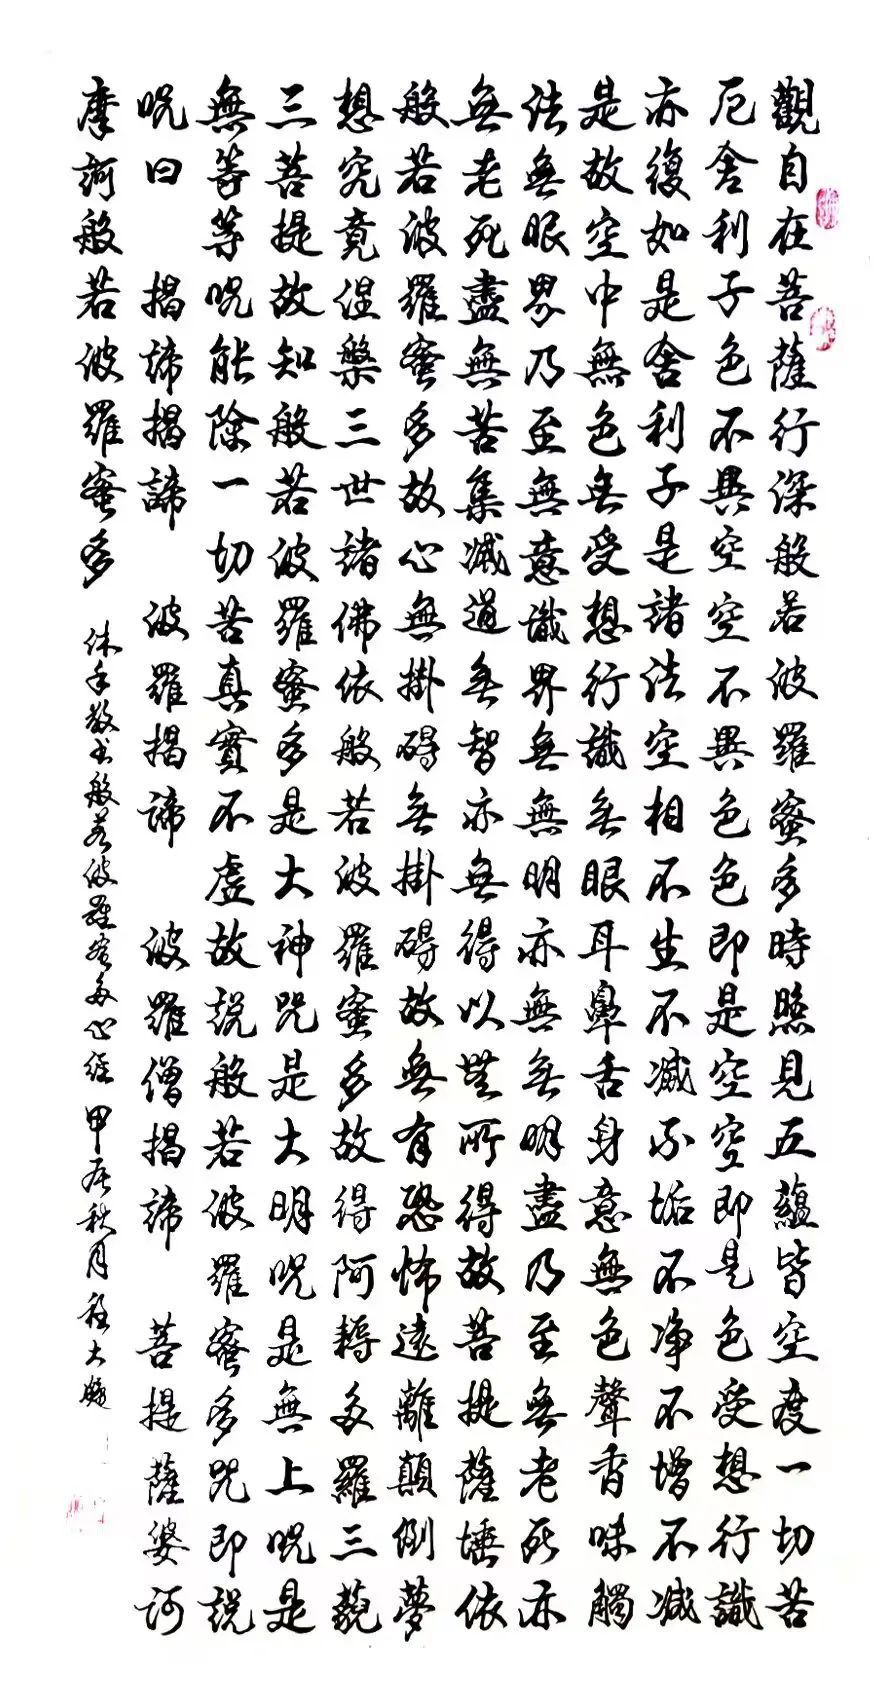 觀自在菩薩行深般若波羅蜜多時照見五蘊皆空度一切苦
厄舍利子色不異空空不異色色即是空空即是色受想行識
亦復如是舍利子是諸法空相不生不滅不垢不净不增不減
是故空中無色無受想行識無眼耳鼻舌身意無色聲香味觸
法無眼界乃至無意識界無無明亦無無明盡乃至無老死亦
無老死盡無苦集滅道無智亦無得以無所得故菩提薩埵依
般若波羅蜜多故心無掛碍無掛碍故無有恐怖遠離顛倒夢
想究竟涅槃三世諸佛依般若波羅蜜多故得阿耨多羅三藐
三菩提故知般若波羅蜜多是大神呪是大明呪是無上呪是
無等等呪能除一切苦真實不虛故說般若波羅蜜多呪即說
呪曰 揭諦揭諦 波羅揭諦 波羅僧揭諦 菩提薩婆訶
摩訶般若波羅蜜多
沐手敬书般若波羅蜜多心經 甲辰秋月 程大